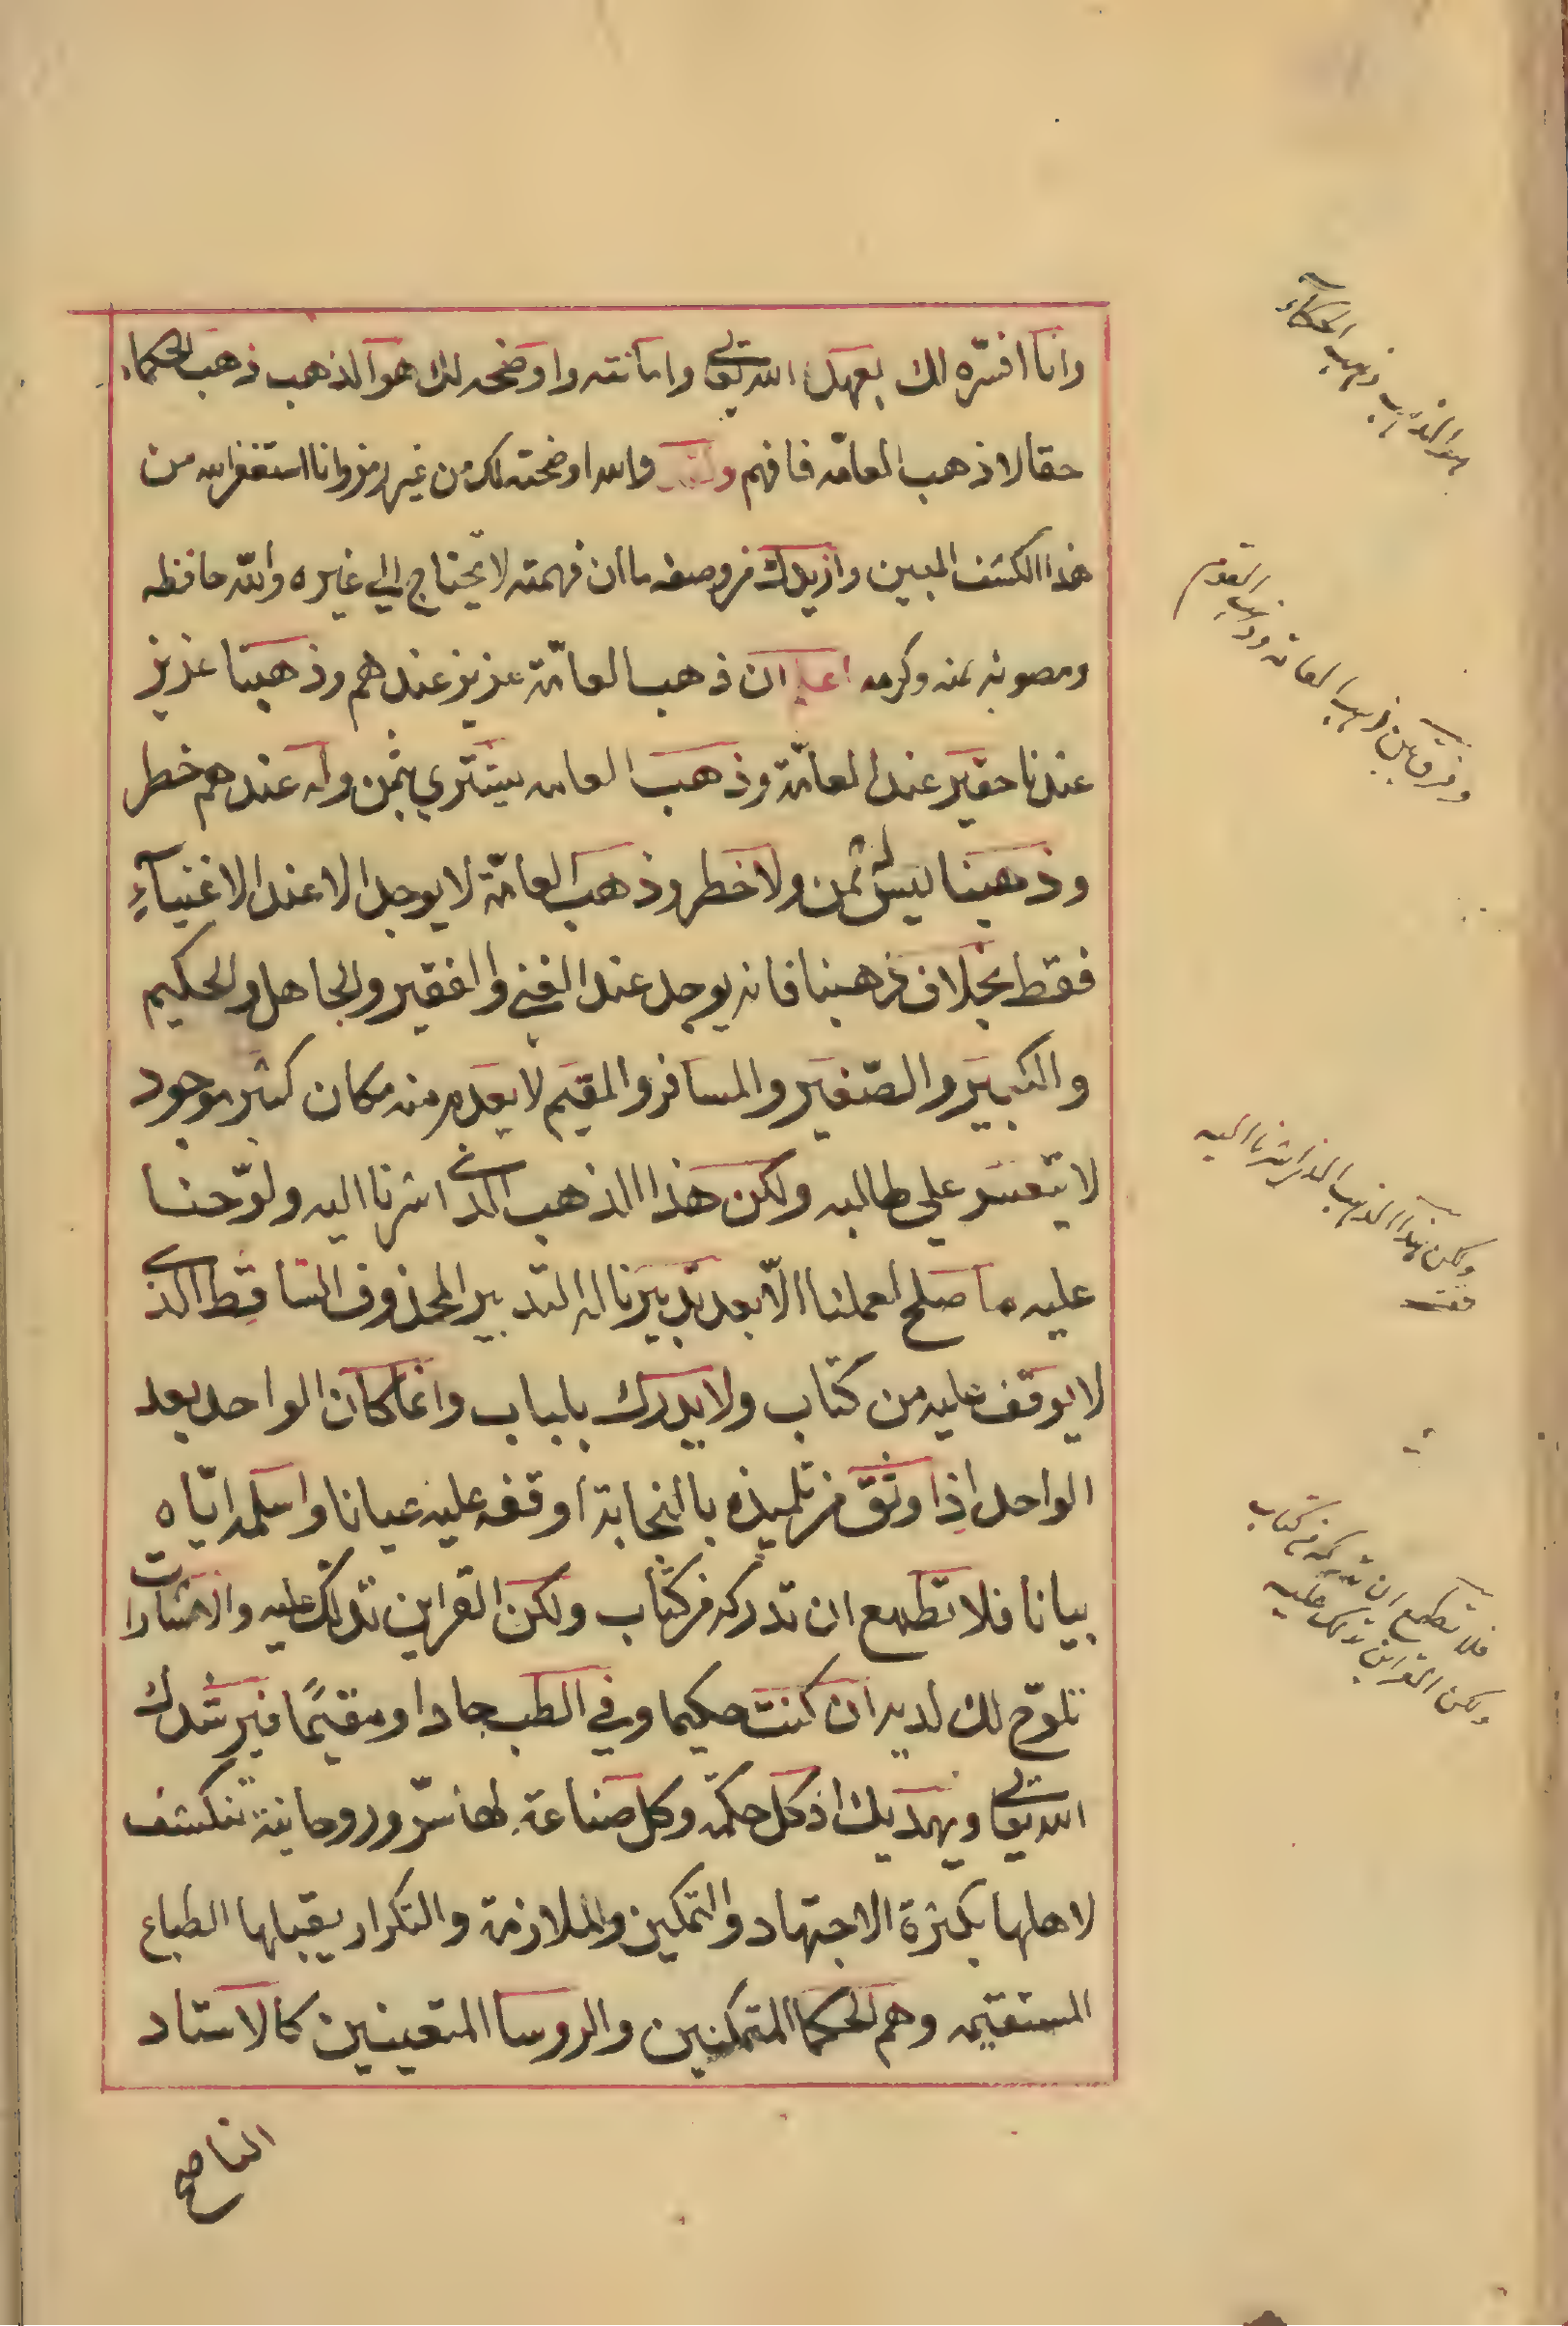 وانا افسّره لك بعهد الله تعالى وامانته واوضحه لك هو الذهب ذهب الحكماء
حقا لا ذهب العامّه فافهم والله اوضحته لك من غير رمز وانا استغفر الله من
هذا الكشف المبين وازيدك فى وصفه ما ان فهمته لا تحتاج الي غيره والله حافظه
ومصونه بمنه وكرمه اعلم ان ذهب العامّة عزيز عندهم وذهبنا عزيز
عندنا حقير عند العامّة وذهب العامه يشترى بثمن وله عندهم خطر
وذهبنا ليس له ثمن ولا خطر وذهب العامّة لا يوجد الا عند الاغنيآء
فقط بخلاف ذهبنا فانه يوجد عند الغني والفقير والجاهل والحكيم
والكبير والصّغير والمسافر والمقيم لا يعدم منه مكان كثير موجود
لا يتعسر علي طالبه ولكن هذا الذهب الذى اشرنا اليه ولوّحنا
عليه ما صلح لعملنا الاّ بعد تدبيرنا له التدبير المحذوف السّاقط الذى
لا يوقف عليه من كتاب ولا يدرك بالباب وانما كان الواحد بعد
الواحد اذا وثق من تلميذه بالنجابة اوقفه عليه عيانا واسلمه ايّاه
بيانا فلا تطمع ان تدركه فى كتاب ولكن القراين تدلك عليه والاشارات
تلوّح لك لديه ان كنت حكيما وفي الطب جادا ومقيمًا فيرشدك
الله تعالى ويهديك اذ كل حكمة وكل صناعة لها سرّ وروحانية تنكشف
لاهلها بكثرة الاجتهاد والتمكين والملازمة والتكرار يقبلها الطباع
المستقيمه وهم الحكما المتمكنين والروسا المتعينين كالاستاد
الناصح
هو الذهب ذهب الحكمآء
وفرق بين ذهب العامة وذهب القوم
ولكن هذا الذهب الذى اشرنا اليه
فلا تطمع ان تدركه فى كتاب
ولكن القراين تدلك عليه